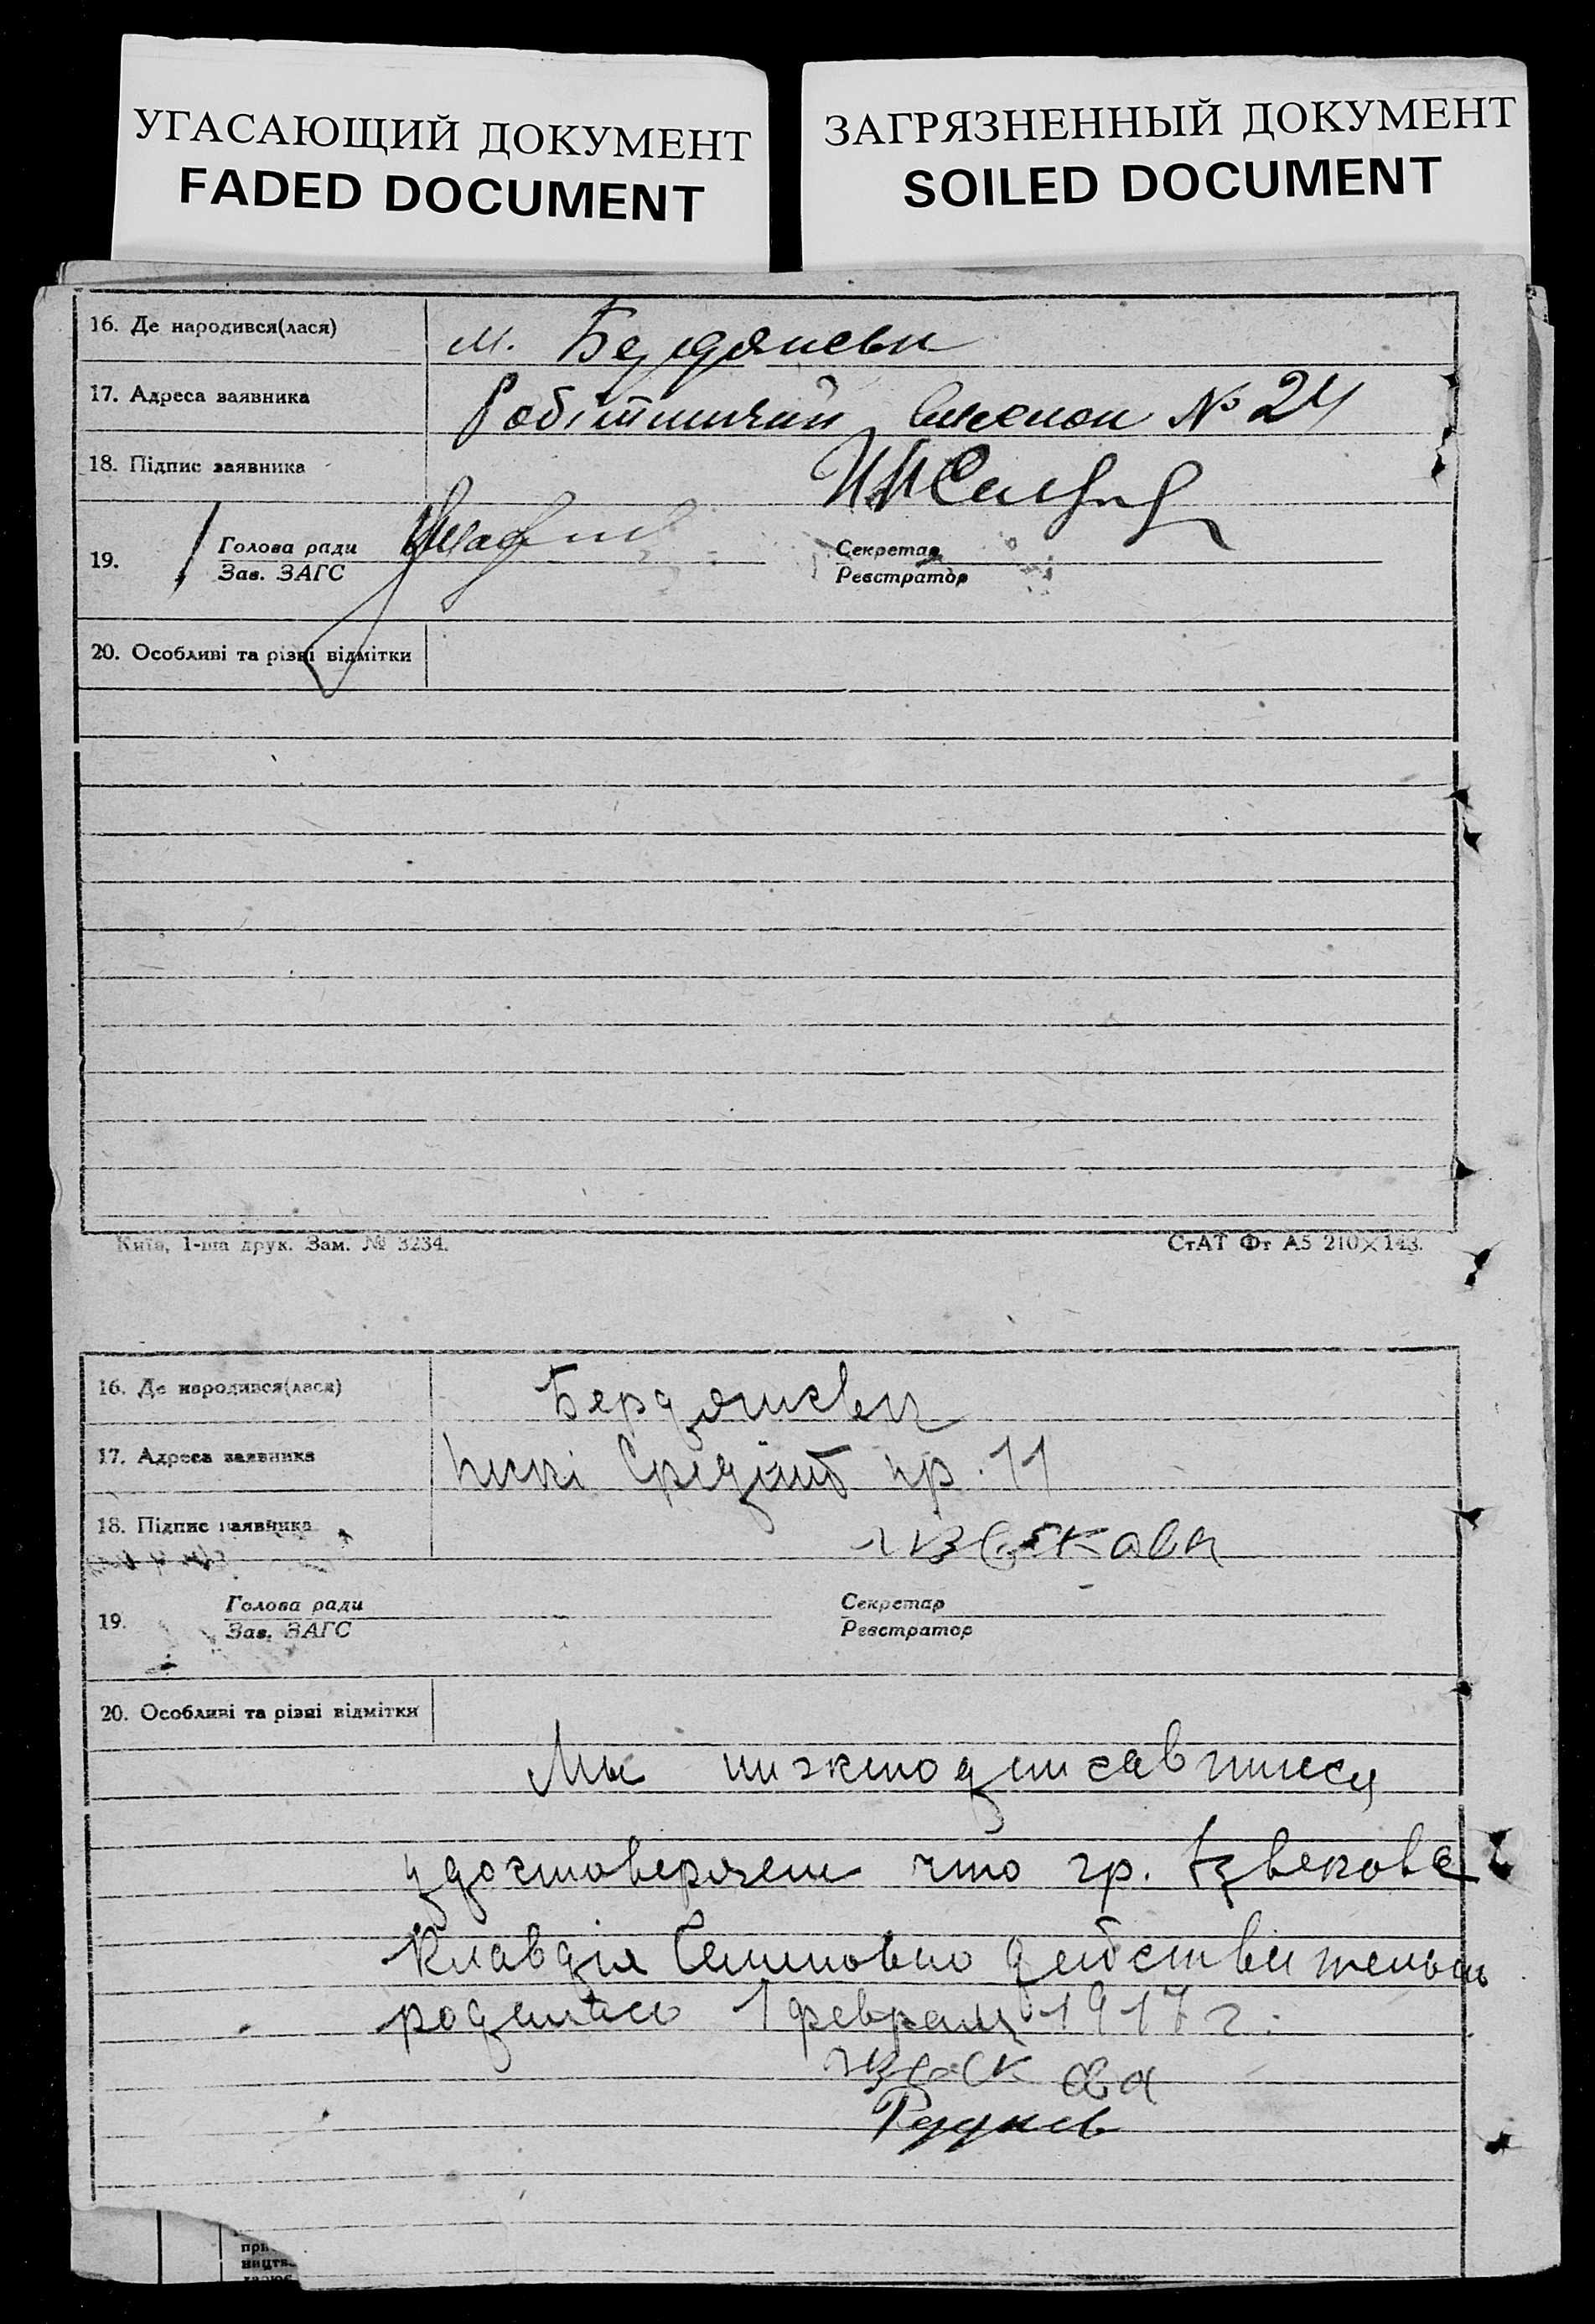 УГАСАЮЩИЙ ДОКУМЕНТ
FADED DOCUMENT
ЗАГРЯЗНЕННЫЙ ДОКУМЕНТ
SOILED DOCUMENT
16. Де народився(лася) м. Бердянськ
17. Адреса заявника Робітничий № 24
18. Підпис заявника
19. Голова ради Секретар
Зав. ЗАГС Реєстратор
20. Особливі та різні відмітки
Київ, 1-ша друк. Зам. № 3234. СтАТ Фт А5 210×143.
16. Де народився(лася) Бердянськ
17. Адреса заявника пр. 11
18. Підпис заявника Извекова
19. Голова ради Секретар
Зав. ЗАГС Реєстратор
20. Особливі та різні відмітки
Мы нижкеподписавшиеся
удостоверяем что гр. Извекова
Клавдия Семиновно действительно
родилась 1 февраля 1917 г.
Извекова
при
ництв